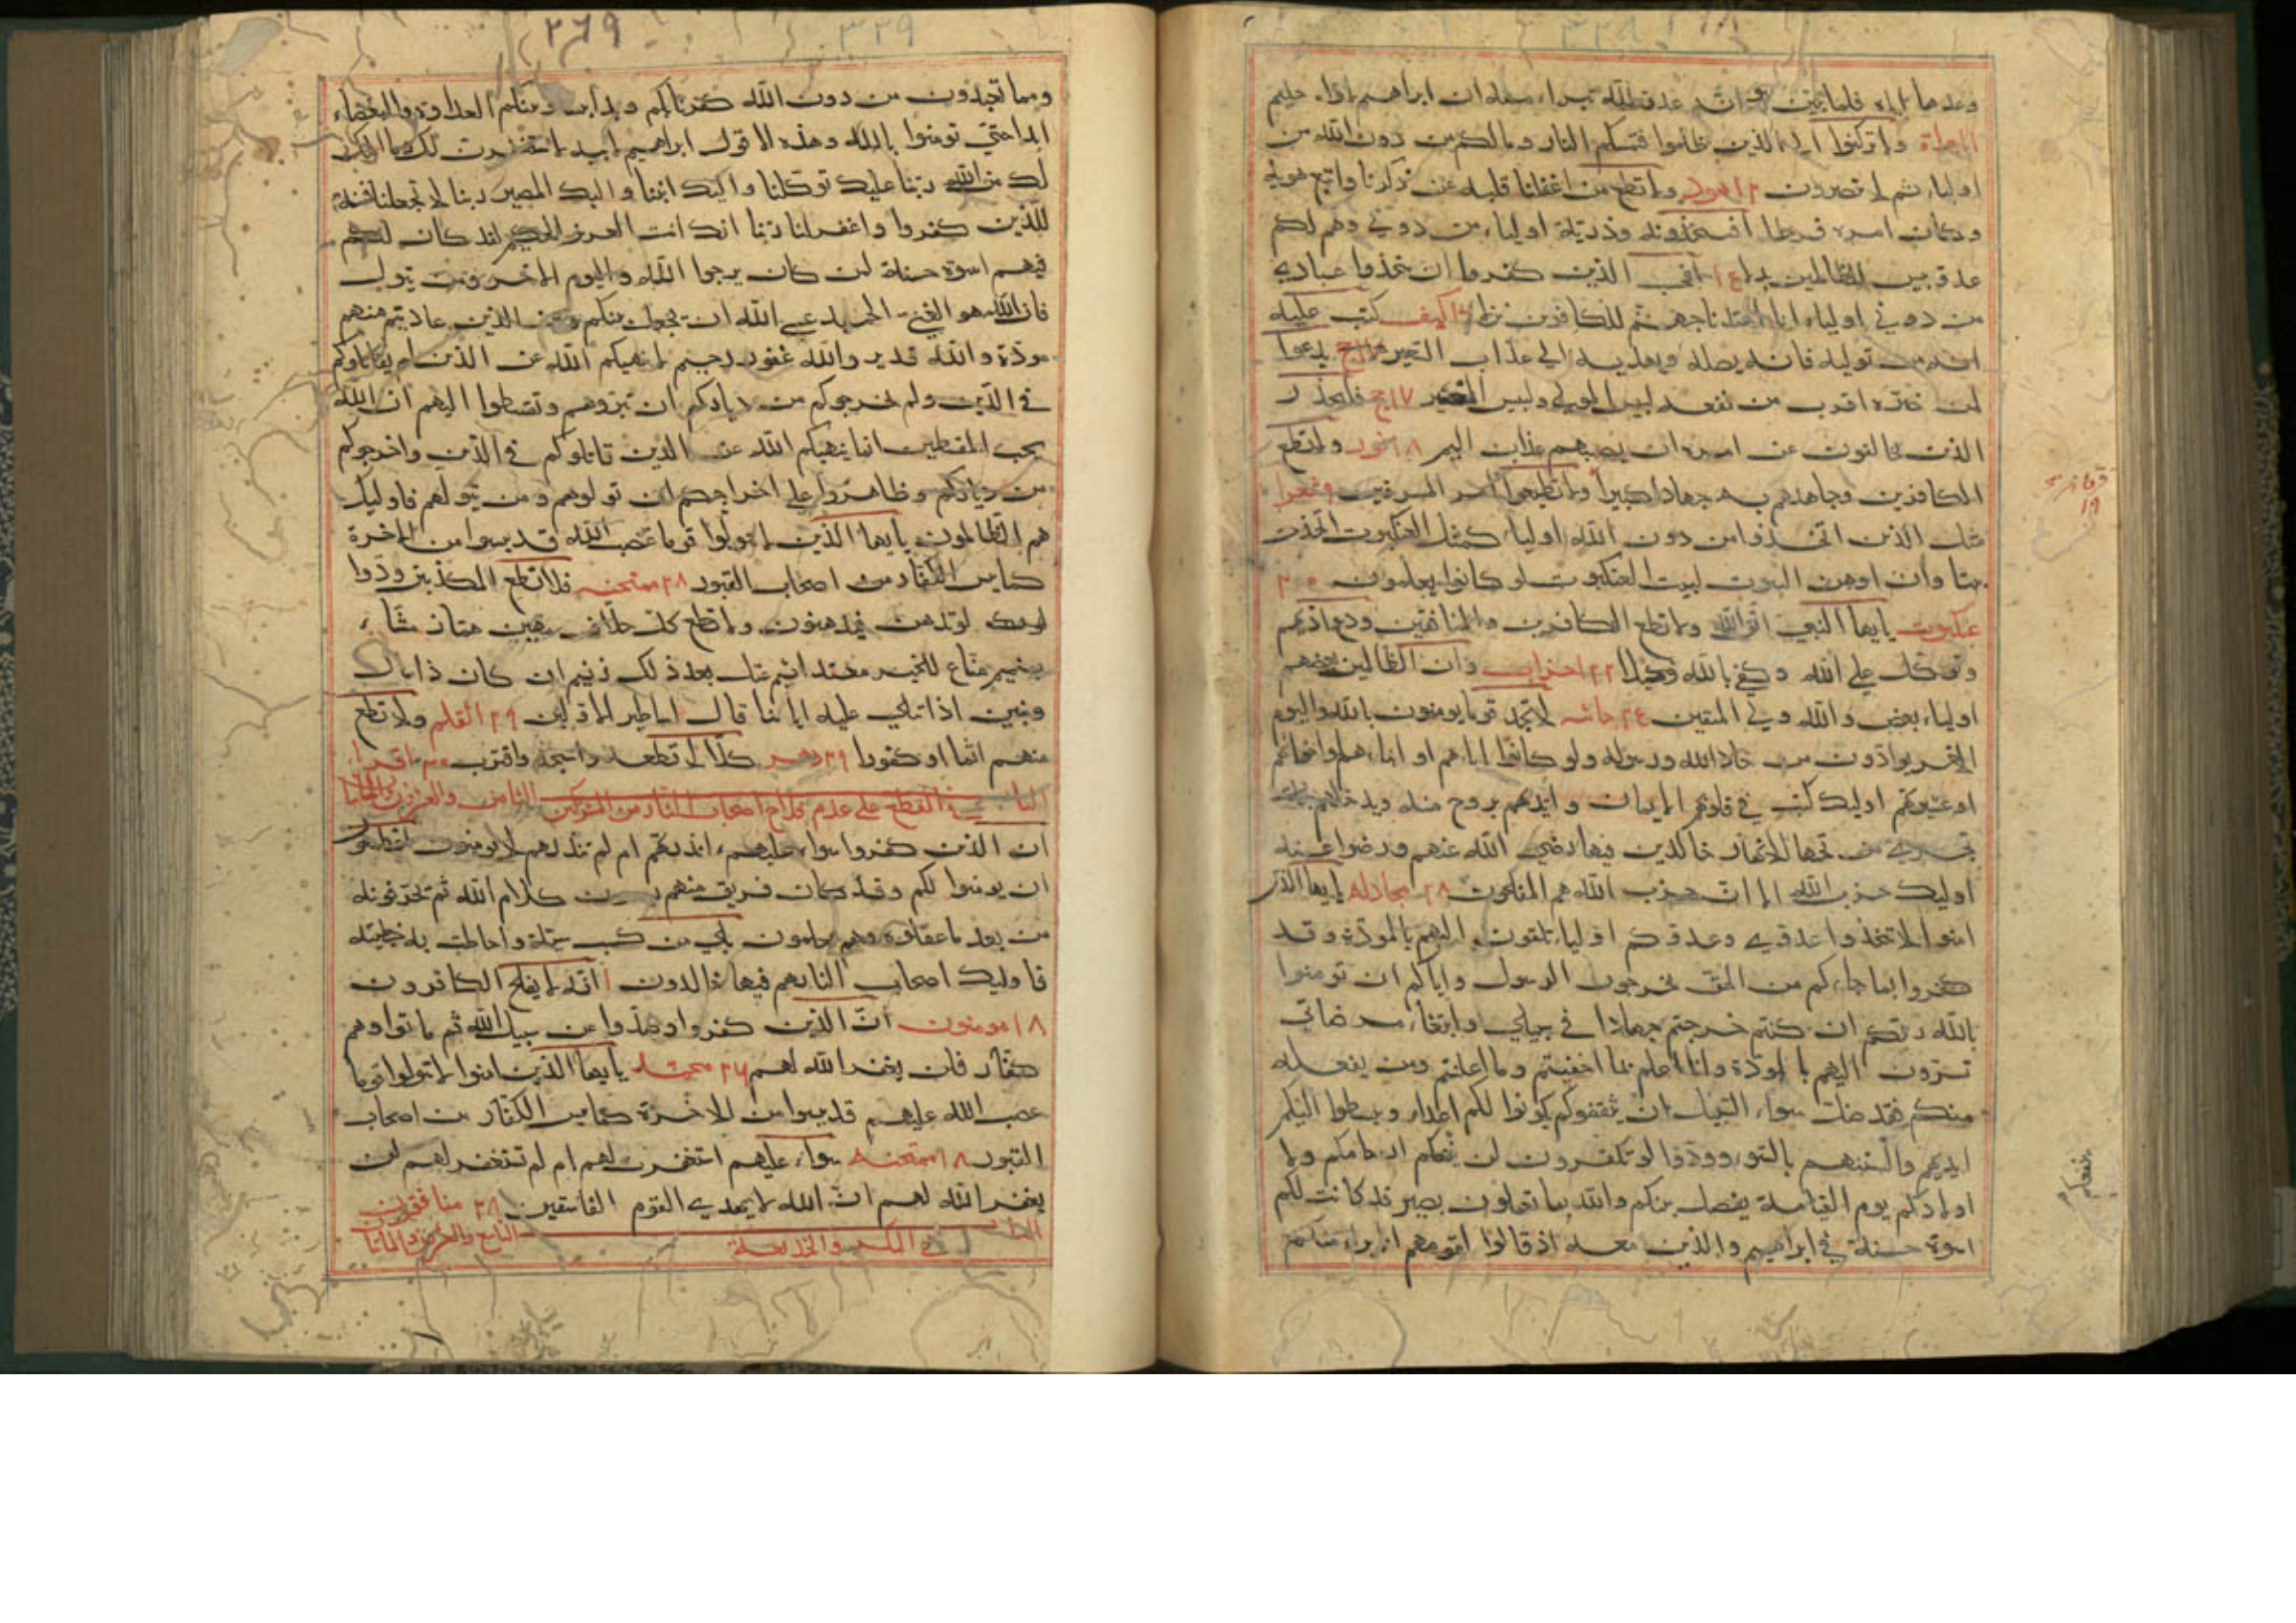 وعدها اياه فلما تبين له انه عدو لله تبرا منه ان ابراهيم لاواه حليم
ولا تركنوا الى الذين ظلموا فتمسكم النار وما لكم من دون الله من
اولياء ثم لا تنصرون هود ولا تطع من اغفلنا قلبه عن ذكرنا واتبع هويه
وكان امره فرطا افتتخذونه وذريته اولياء من دوني وهم لكم
عدو بيس للظالمين بدلا افحسب الذين كفروا ان يتخذوا عبادي
من دوني اولياء انا اعتدنا جهنم للكافرين نزلا كهف كتب عليه
انه من توليه فانه يضله ويهديه الى عذاب السعير حج يدعوا
لمن ضره اقرب من نفعه لبيس المولى ولبيس العشير ١٧ حج فليحذر
الذين يخالفون عن امره ان يصيبهم عذاب اليم ١٨ نور ولا تطع
الكافرين وجاهدهم به جهادا كبيرا ولا تطيعوا امر المسرفين شعرا
مثل الذين اتخذوا من دون الله اولياء كمثل العنكبوت اتخذت
بيتا وان اوهن البيوت لبيت العنكبوت لو كانوا يعلمون ٢٠
عنكبوت يايها النبي اتق الله ولا تطع الكافرين والمنافقين ودع اذيهم
وتوكل على الله وكفى بالله وكيلا ٢٢ احزاب وان الظالمين بعضهم
اولياء بعض والله ولي المتقين ٢٤ جاثيه لا تجد قوما يومنون بالله واليوم
الاخر يوادون من حاد الله ورسوله ولو كانوا اباءهم او ابناءهم او اخوانهم
او عشيرتهم اوليك كتب في قلوبهم الايمان وايدهم بروح منه ويدخلهم جنات
تجري من تحتها الانهار خالدين فيها رضي الله عنهم ورضوا عنه
اوليك حزب الله الا ان حزب الله هم المفلحون ٢٨ مجادله يايها الذين
امنوا لا تتخذوا عدوي وعدوكم اولياء تلقون اليهم بالمودة وقد
كفروا بما جاءكم من الحق يخرجون الرسول واياكم ان تومنوا
بالله ربكم ان كنتم خرجتم جهادا في سبيلي وابتغاء مرضاتي
تسرون اليهم بالمودة وانا اعلم بما اخفيتم وما اعلنتم ومن يفعله
منكم فقد ضل سواء السبيل ان يثقفوكم يكونوا لكم اعداء ويبسطوا اليكم
ايديهم والسنتهم بالسوء وودوا لو تكفرون لن تنفعكم ارحامكم ولا
اولادكم يوم القيامة يفصل بينكم والله بما تعملون بصير قد كانت لكم
اسوة حسنة في ابراهيم والذين معه اذ قالوا لقومهم انا براء منكم
تنفعكم
٢٦٩
٣٣٩
ومما تعبدون من دون الله كفرنا بكم وبدا بيننا وبينكم العداوة والبغضاء
ابدا حتى تومنوا بالله وحده الا قول ابراهيم لابيه لاستغفرن لك وما املك
لك من الله ربنا عليك توكلنا واليك انبنا واليك المصير ربنا لا تجعلنا فتنة
للذين كفروا واغفر لنا ربنا انك انت العزيز الحكيم لقد كان لكم
فيهم اسوة حسنة لمن كان يرجوا الله واليوم الاخر ومن يتول
فان الله هو الغني الحميد عسى الله ان يجعل بينكم وبين الذين عاديتم منهم
مودة والله قدير والله غفور رحيم لا ينهيكم الله عن الذين لم يقاتلوكم
في الدين ولم يخرجوكم من دياركم ان تبروهم وتقسطوا اليهم ان الله
يحب المقسطين انما ينهيكم الله عن الذين قاتلوكم في الدين واخرجوكم
من دياركم وظاهروا على اخراجكم ان تولوهم ومن يتولهم فاوليك
هم الظالمون يايها الذين لا تتولوا قوما غضب الله قد يسوا من الاخرة
كما يس الكفار من اصحاب القبور ٢٨ ممتحنه فلا تطع المكذبين ودوا
لو تدهن فيدهنون ولا تطع كل حلاف مهين هماز مشاء
بنميم مناع للخير معتد اثيم عتل بعد ذلك زنيم ان كان ذا مال
وبنين اذا تتلى عليه اياتنا قال اساطير الاولين ٢٩ القلم ولا تطع
منهم اثما او كفورا ٢٩ دهر كلا لا تطعه واسجد واقترب ٣٠ اقرا
الباب الثامن والعشرون والمايتا في القطع على عدم فلاح اصحاب النار من المشركين
ان الذين كفروا سواء عليهم ءانذرتهم ام لم تنذرهم لا يومنون افتطمعون
ان يومنوا لكم وقد كان فريق منهم يسمعون كلام الله ثم يحرفونه
من بعد ما عقلوه وهم يعلمون بلى من كسب سيئة واحاطت به خطيئته
فاوليك اصحاب النار هم فيها خالدون انه لا يفلح الكافرون
١٨ مومنون ان الذين كفروا وصدوا عن سبيل الله ثم ماتوا وهم
كفار فلن يغفر الله لهم ٢٦ محمد يايها الذين امنوا لا تتولوا قوما
غضب الله عليهم قد يسوا من الاخرة كما يس الكفار من اصحاب
القبور ٢٨ ممتحنه سواء عليهم استغفرت لهم ام لم تستغفر لهم لن
يغفر الله لهم ان الله لا يهدي القوم الفاسقين ٢٨ منافقون
الباب التاسع والعشرون والمايتا في المكر والخديعة